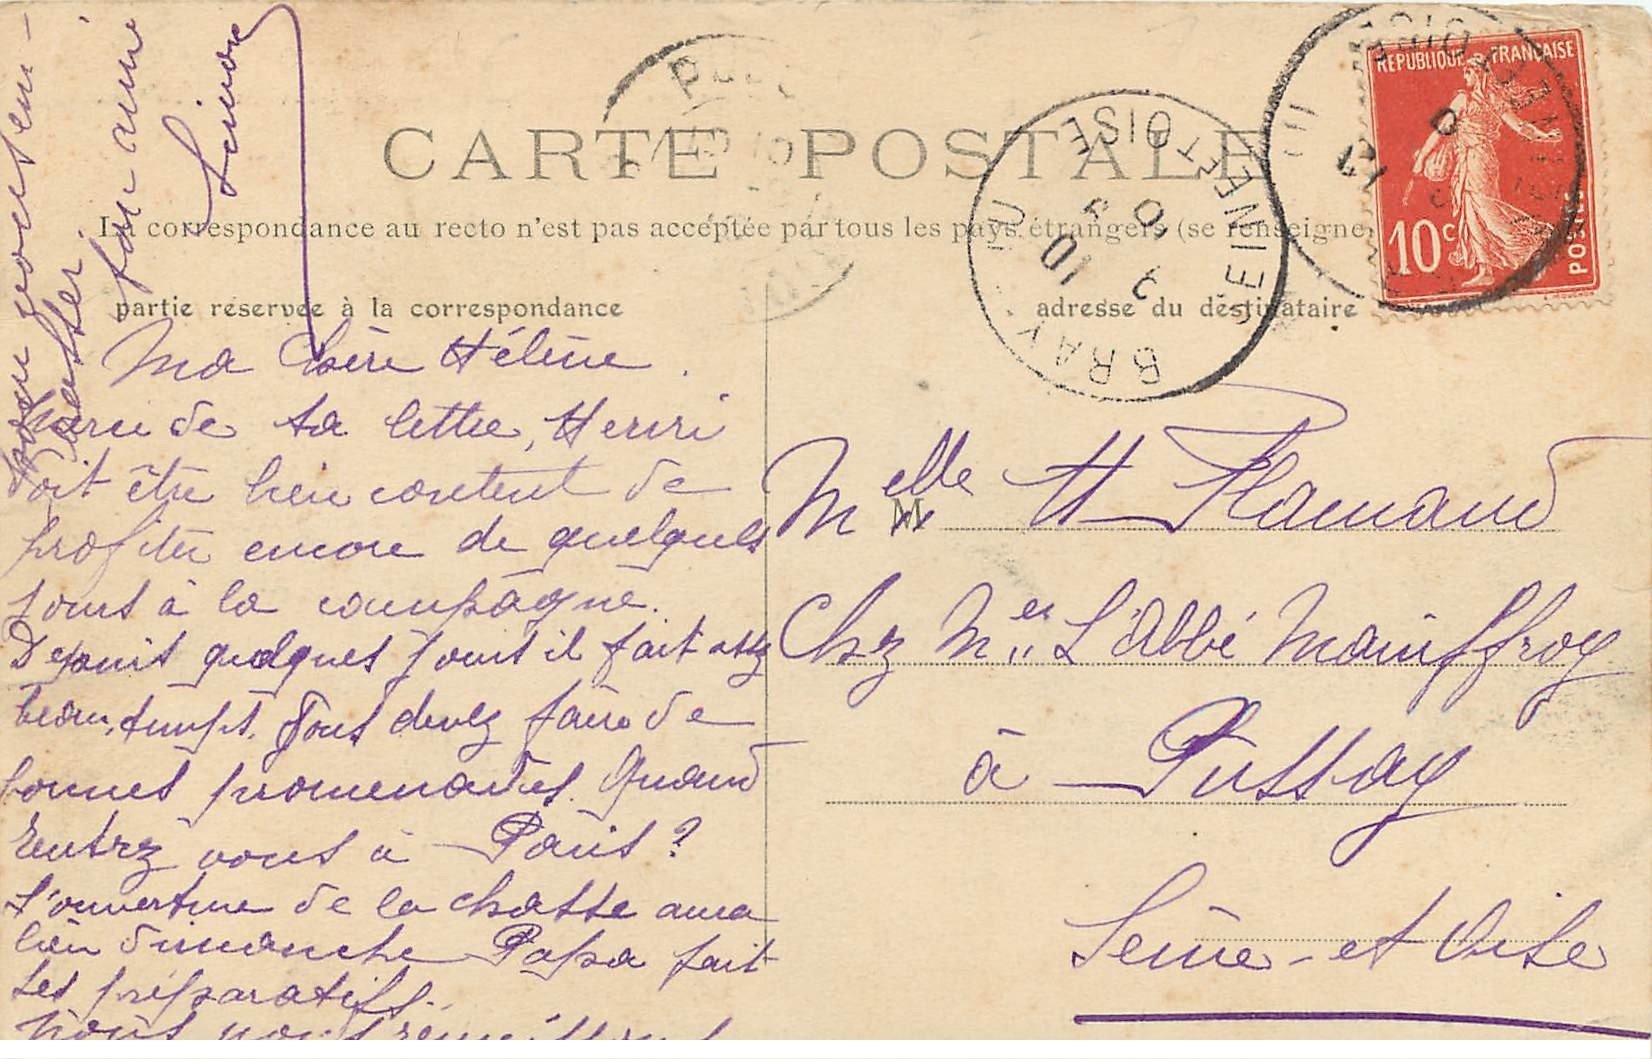 CARTE POSTALE
La correspondance au recto n'est pas acceptée par tous les pays étrangers (se renseigne
partie réservée à la correspondance
adresse du destinataire
REPUBLIQUE FRANÇAISE
10c
POSTES
BRAY
SEINE ET OISE
Ma Chère Hélène.
Merci de ta lettre, Henri
doit être bien content de
profiter encore de quelques
jours à la campagne.
Depuis quelques jours il fait assez
beau temps. Vous devez faire de
bonnes promenades. Quand
rentrez vous à Paris?
L'ouverture de la chasse aura
lieu dimanche Papa fait
ses préparatifs.
Nous nous
ton amie
Simone
Melle H Flamand
Chez Mr L'Abbé Mainffroy
à Pussay
Seine-et Oise